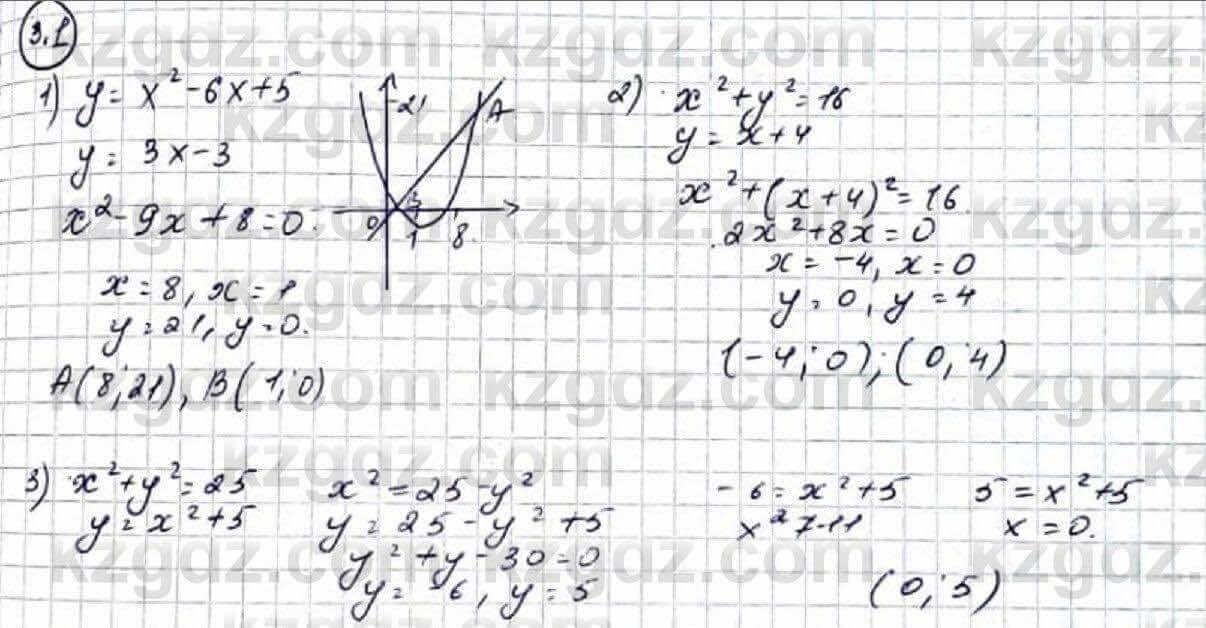 3.1
1) y = x² - 6x + 5
y = 3x - 3
x² - 9x + 8 = 0.
x = 8, x = 1
y = 21, y = 0.
A(8; 21), B(1; 0)
21
A
B
0
1
8
2) x² + y² = 16
y = x + 4
x² + (x + 4)² = 16
2x² + 8x = 0
x = -4, x = 0
y = 0, y = 4
(-4; 0); (0; 4)
3) x² + y² = 25
y = x² + 5
x² = 25 - y²
y = 25 - y² + 5
y² + y - 30 = 0
y = -6, y = 5
-6 = x² + 5
x² 7-11
5 = x² + 5
x = 0.
(0; 5)
kzgdz.com